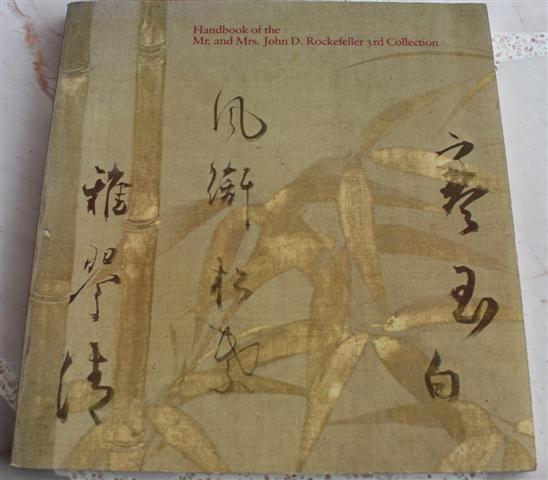 Handbook of the
Mr. and Mrs. John D. Rockefeller 3rd Collection
寒玉白
風銜松葉
雅琴清